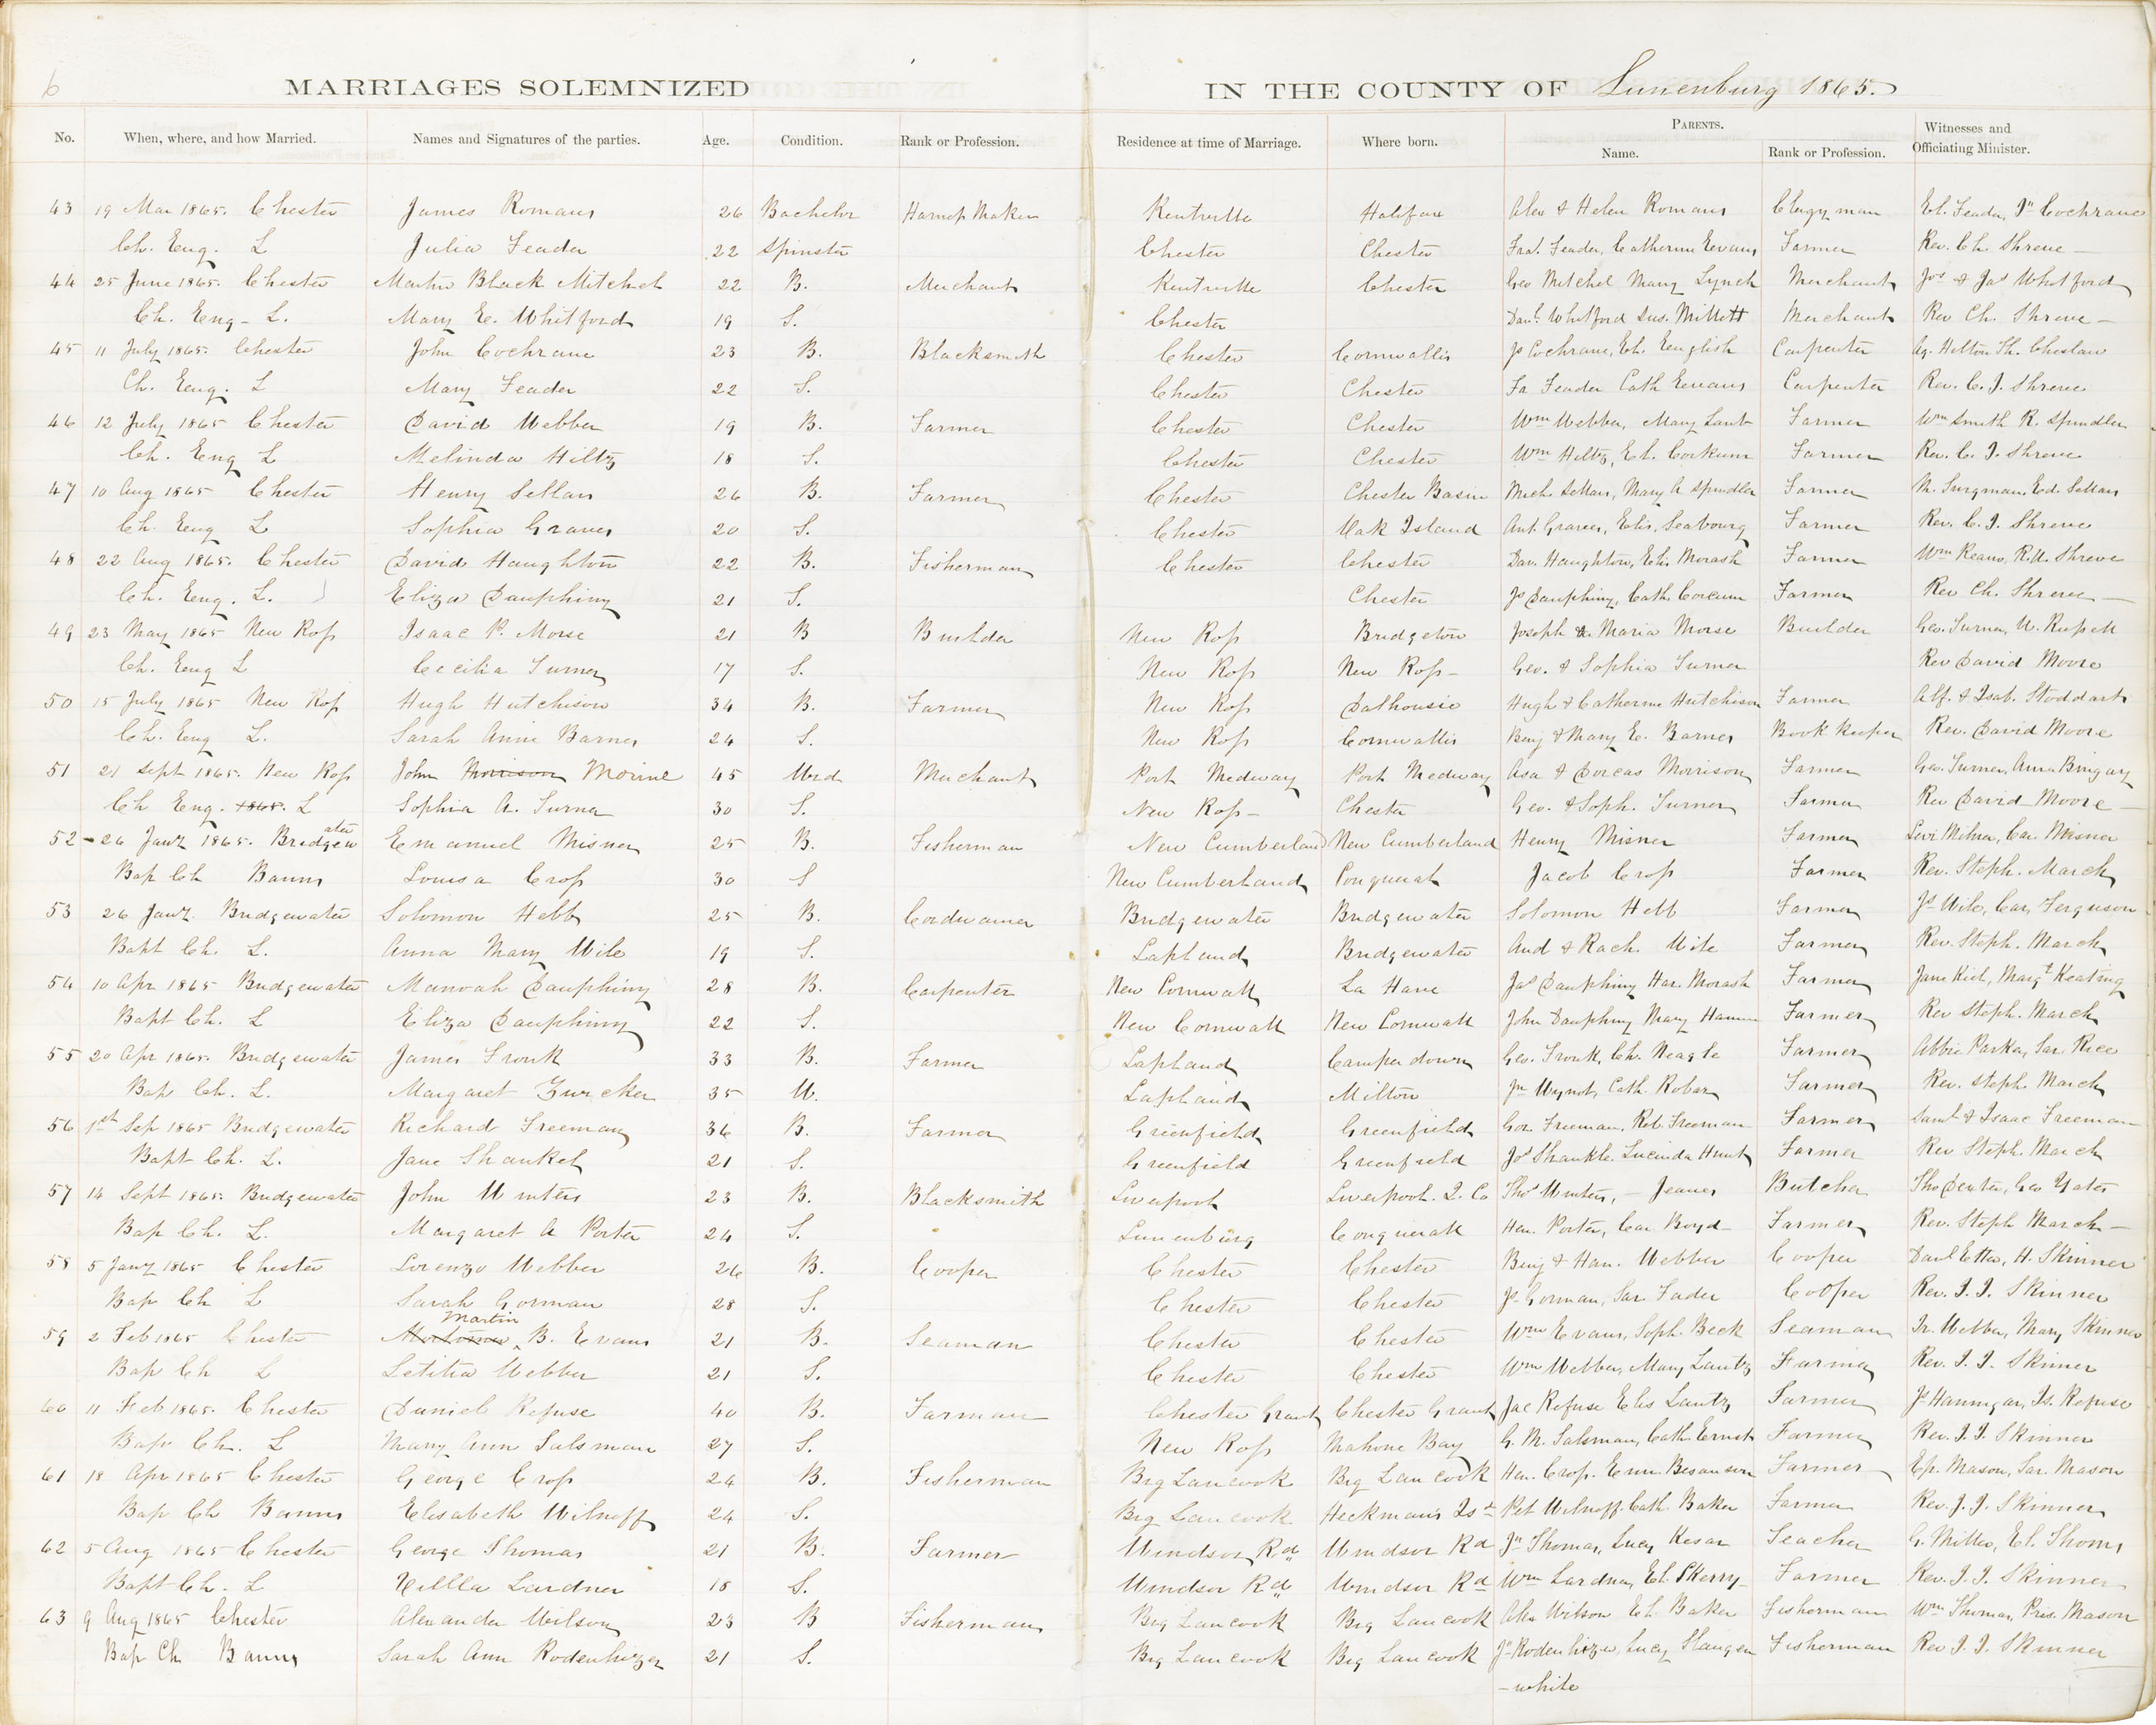 6
MARRIAGES SOLEMNIZED IN THE COUNTY OF Lunenburg 1865.
No. When, where, and how Married. Names and Signatures of the parties. Age. Condition. Rank or Profession. Residence at time of Marriage. Where born. PARENTS. Name. Rank or Profession. Witnesses and Officiating Minister.
43 19 Mar 1865. Chester James Romans 26 Bachelor Harness Maker Kentville Halifax Alex & Helen Romans Clergyman El. Feader, Jn Cochrane
Ch. Eng. L Julia Feader 22 Spinster Chester Chester Fras. Feader, Catherine Evans Farmer Rev. Ch. Shreve
44 25 June 1865. Chester Martin Black Mitchel 22 B. Merchant Kentville Chester Geo Mitchel Mary Lynch Merchant Jos & Jas Whitford
Ch. Eng - L. Mary E. Whitford 19 S. Chester Danl. Whitford Sus. Millett Merchant Rev Ch. Shreve
45 11 July 1865. Chester John Cochrane 23 B. Blacksmith Chester Cornwallis Js Cochrane, El. English Carpenter Ag. Hilton Th.
Ch. Eng. L Mary Feader 22 S. Chester Chester Fa Feader Cath Evans Carpenter Rev. C. J. Shreve
46 12 July 1865 Chester David Webber 19 B. Farmer Chester Chester Wm Webber, Mary Lant Farmer Wm Smith R. Spindler
Ch. Eng L Melinda Hiltz 18 S. Chester Chester Wm Hiltz, El. Corkum Farmer Rev. C. J. Shreve
47 10 Aug 1865 Chester Henry Sellars 26 B. Farmer Chester Chester Basin Mich. Sellars, Mary A Spindler Farmer M. Ed. Sellars
Ch. Eng L Sophia Graves 20 S. Chester Oak Island Ant. Graves, Elis. Seabourg Farmer Rev. C. J. Shreve
48 22 Aug 1865. Chester David Haughton 22 B. Fisherman Chester Chester Dav. Haughton, Eli. Morash Farmer Wm Reans, R.U. Shreve
Ch. Eng. L. Eliza Dauphiny 21 S. Chester Js Dauphiny, Cath. Corcum Farmer Rev Ch. Shreve
49 23 May 1865 New Ross Isaac P. Morse 21 B Builder New Ross Bridgeton Joseph & Maria Morse Builder Geo. Turner, W. Russell
Ch. Eng L Cecilia Turner 17 S. New Ross New Ross Geo. & Sophia Turner Rev David Moore
50 15 July 1865 New Ross Hugh Hutchison 34 B. Farmer New Ross Dalhousie Hugh & Catherine Hutchison Farmer Alf. & Isab. Stoddart
Ch. Eng L. Sarah Anne Barnes 24 S. New Ross Cornwallis Benj & Mary E. Barnes Book Keeper Rev. David Moore
51 21 Sept 1865. New Ross John Morrison Morine 45 Wid Merchant Port Medway Port Medway Asa & Dorcas Morrison Farmer Geo. Turner, Anna Bingay
Ch Eng. 1865. L Sophia A. Turner 30 S. New Ross Chester Geo. & Soph. Turner Farmer Rev David Moore
52 - 26 Jany 1865. Bridgewater Emanuel Misner 25 B. Fisherman New Cumberland New Cumberland Henry Misner Farmer Levi Milner, Car. Misner
Bap Ch Banns Louisa Cross 30 S New Cumberland Conquerall Jacob Cross Farmer Rev. Steph. March
53 26 Jany. Bridgewater Solomon Hebb 25 B. Cordwainer Bridgewater Bridgewater Solomon Hebb Farmer Js Wile, Car. Ferguson
Bapt Ch. L. Anna Mary Wile 19 S. Lapland Bridgewater And & Rach. Wile Farmer Rev. Steph. March
54 10 Apr 1865 Bridgewater Manoah Dauphiny 28 B. Carpenter New Cornwall La Have Jas Dauphiny Har. Morash Farmer Jane Margt Keating
Bapt Ch. L Eliza Dauphiny 22 S. New Cornwall New Cornwall John Dauphiny Mary Hamm Farmer Rev Steph. March
55 20 Apr 1865. Bridgewater James Fronk 33 B. Farmer Lapland Camperdown Geo. Fronk, Ch. Neagle Farmer Abbie Parker, Sar. Rice
Bap Ch. L. Margaret Zwicker 35 W. Lapland Milton Jn Wynot, Cath. Robar Farmer Rev. Steph. March
56 1st Sep 1865 Bridgewater Richard Freeman 36 B. Farmer Greenfield Greenfield Gor. Freeman, Reb. Freeman Farmer Saml & Isaac Freeman
Bapt Ch. L. Jane Shankel 21 S. Greenfield Greenfield Jos Shankle. Lucinda Hunt Farmer Rev Steph. March
57 14 Sept 1865. Bridgewater John Winters 23 B. Blacksmith Liverpool Liverpool. Q. Co Thos Winters, - Jeanes Butcher Tho Dexter, Geo Yates
Bap Ch. L. Margaret A Porter 24 S. Lunenburg Conquerall Hen. Porter, Car. Boyd Farmer Rev. Steph March
58 5 Jany 1865 Chester Lorenzo Webber 26 B. Cooper Chester Chester Benj & Han. Webber Cooper Danl Etter, H. Skinner
Bap Ch L Sarah Gorman 28 S. Chester Chester Js Gorman, Sar. Fader Cooper Rev. I. J. Skinner
59 2 Feb 1865 Chester Martin B. Evans 21 B. Seaman Chester Chester Wm Evans, Soph. Beck Seaman Jr. Webber, Mary Skinner
Bap Ch L Letitia Webber 21 S. Chester Chester Wm Webber, Mary Lantz Farmer Rev. I. J. Skinner
60 11 Feb 1865. Chester Daniel Refuse 40 B. Farman Chester Grant Chester Grant Jac Refuse Elis Lantz Farmer Js Hannigar, Is. Refuse
Bap Ch. L Mary Ann Salsman 27 S. New Ross Mahone Bay G. M. Salsman, Cath. Ernst Farmer Rev. I. J. Skinner
61 18 Apr 1865 Chester George Cross 24 B. Fisherman Big Tancook Big Tancook Hen. Cross. Emn. Besanson Farmer Ep. Mason, Sar. Mason
Bap Ch Banns Elisabeth Wilneff 24 S. Big Tancook Heckman's Isd Pet Wilneff. Cath. Baker Farmer Rev. J. J. Skinner
62 5 Aug 1865 Chester George Thomas 21 B. Farmer Windsor Rd Windsor Rd Jn Thomas, Lucy Kesar Teacher G. Miller, El. Thoms
Bapt Ch. L Lardner 18 S. Windsor Rd Windsor Rd Wm Lardner, El. Skerry Farmer Rev. I. J. Skinner
63 9 Aug 1865 Chester Alexander Wilson 23 B Fisherman Big Tancook Big Tancook Alex Wilson El. Baker Fisherman Wm Thomas, Pris. Mason
Bap Ch Banns Sarah Ann Rodenhizer 21 S. Big Tancook Big Tancook Jn Rodenhizer, Lucy Slaugen Fisherman Rev I. J. Skinner
-white